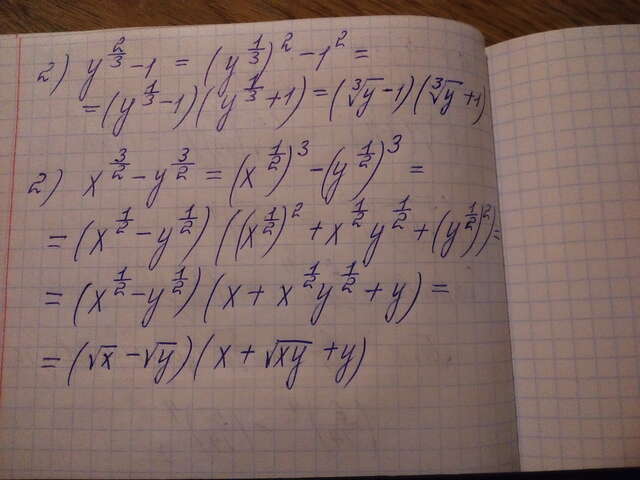 2) y^{\frac{2}{3}} - 1 = (y^{\frac{1}{3}})^2 - 1^2 =
= (y^{\frac{1}{3}} - 1)(y^{\frac{1}{3}} + 1) = (\sqrt[3]{y} - 1)(\sqrt[3]{y} + 1)
2) x^{\frac{3}{2}} - y^{\frac{3}{2}} = (x^{\frac{1}{2}})^3 - (y^{\frac{1}{2}})^3 =
= (x^{\frac{1}{2}} - y^{\frac{1}{2}})((x^{\frac{1}{2}})^2 + x^{\frac{1}{2}} y^{\frac{1}{2}} + (y^{\frac{1}{2}})^2) =
= (x^{\frac{1}{2}} - y^{\frac{1}{2}})(x + x^{\frac{1}{2}} y^{\frac{1}{2}} + y) =
= (\sqrt{x} - \sqrt{y})(x + \sqrt{xy} + y)